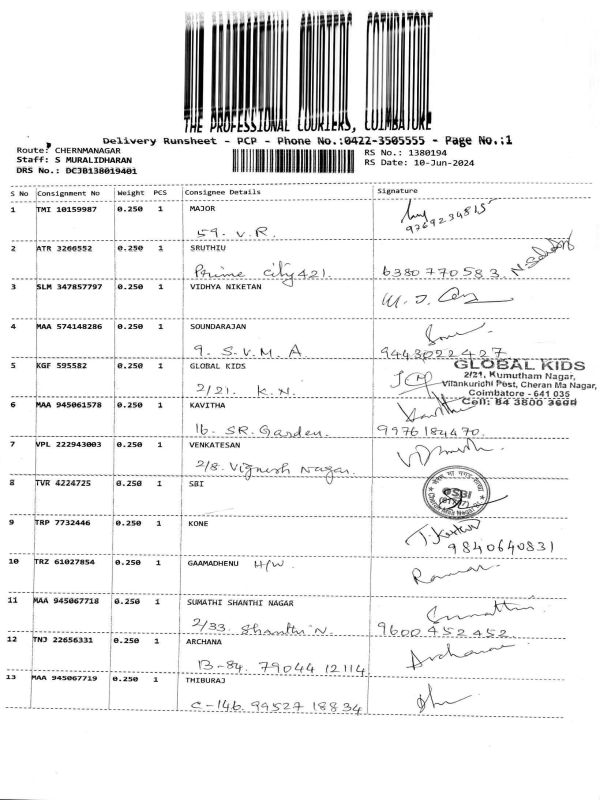 THE PROFESSIONAL COURIERS, COIMBATORE
Delivery Runsheet - PCP - Phone No.:0422-3505555 - Page No.:1
Route: CHERNMANAGAR
RS No.: 1380194
Staff: S MURALIDHARAN
RS Date: 10-Jun-2024
DRS No.: DCJB138019401
S No Consignment No Weight PCS Consignee Details Signature
1 TMI 10159987 0.250 1 MAJOR
59. V.R. 9769234815
2 ATR 3266552 0.250 1 SRUTHIU
Prime City 421. 6380770583
3 SLM 347857797 0.250 1 VIDHYA NIKETAN
4 MAA 574148286 0.250 1 SOUNDARAJAN
9. S.V.M.A. 9443022427
5 KGF 595582 0.250 1 GLOBAL KIDS
2/21. K.N.
GLOBAL KIDS
2/21, Kumutham Nagar,
Vilankurichi Post, Cheran Ma Nagar,
Coimbatore - 641 035
Cell: 84 3800 3600
6 MAA 945061578 0.250 1 KAVITHA
16. SR. Garden. 9976184470.
7 VPL 222943003 0.250 1 VENKATESAN
2/8. Vignesh Nagar.
8 TVR 4224725 0.250 1 SBI
SBI
9 TRP 7732446 0.250 1 KONE
9840640831
10 TRZ 61027854 0.250 1 GAAMADHENU H/W.
Raman
11 MAA 945067718 0.250 1 SUMATHI SHANTHI NAGAR
Sumathi
2/33. Shanthi N. 9600452452.
12 TNJ 22656331 0.250 1 ARCHANA
Archana
B-84. 79044 12114
13 MAA 945067719 0.250 1 THIBURAJ
C-146. 99527 18834